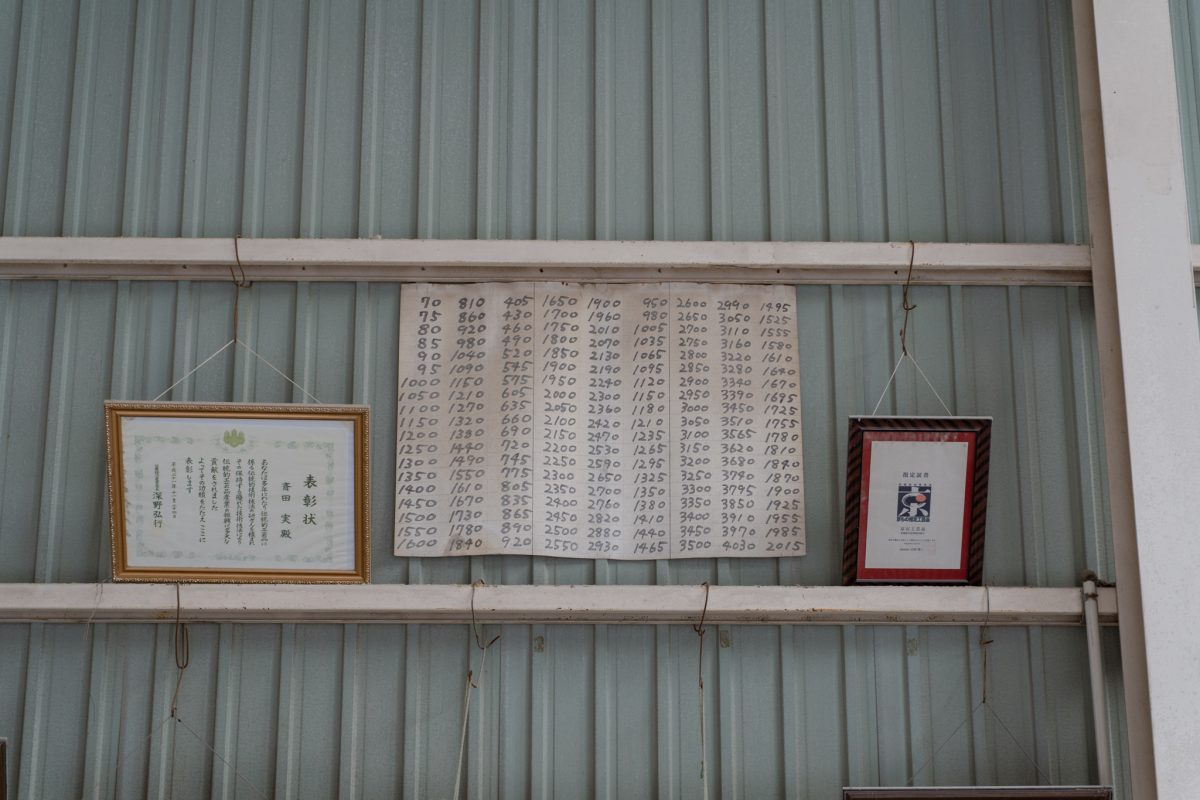 表彰状
斉田 実 殿
あなたは多年にわたり伝統的工芸品に
係る伝統的技術技法の幼力を積まれ
その保持する優れた技術技法により
伝統的工芸品産業の振興に多大な
貢献をされました
よってその功績をたたえここに
表彰します
深野弘行
70 810 405 1650 1900 950 2600 2990 1495
75 860 430 1700 1960 980 2650 3050 1525
80 920 460 1750 2010 1005 2700 3110 1555
85 980 490 1800 2070 1035 2750 3160 1580
90 1040 520 1850 2130 1065 2800 3220 1610
95 1090 545 1900 2190 1095 2850 3280 1640
1000 1150 575 1950 2240 1120 2900 3340 1670
1050 1210 605 2000 2300 1150 2950 3390 1695
1100 1270 635 2050 2360 1180 3000 3450 1725
1150 1320 660 2100 2420 1210 3050 3510 1755
1200 1380 690 2150 2470 1235 3100 3565 1780
1250 1440 720 2200 2530 1265 3150 3620 1810
1300 1490 745 2250 2590 1295 3200 3680 1840
1350 1550 775 2300 2650 1325 3250 3740 1870
1400 1610 805 2350 2700 1350 3300 3795 1900
1450 1670 835 2400 2760 1380 3350 3850 1925
1500 1730 865 2450 2820 1410 3400 3910 1955
1550 1780 890 2500 2880 1440 3450 3970 1985
1600 1840 920 2550 2930 1465 3500 4030 2015
指定証書
京